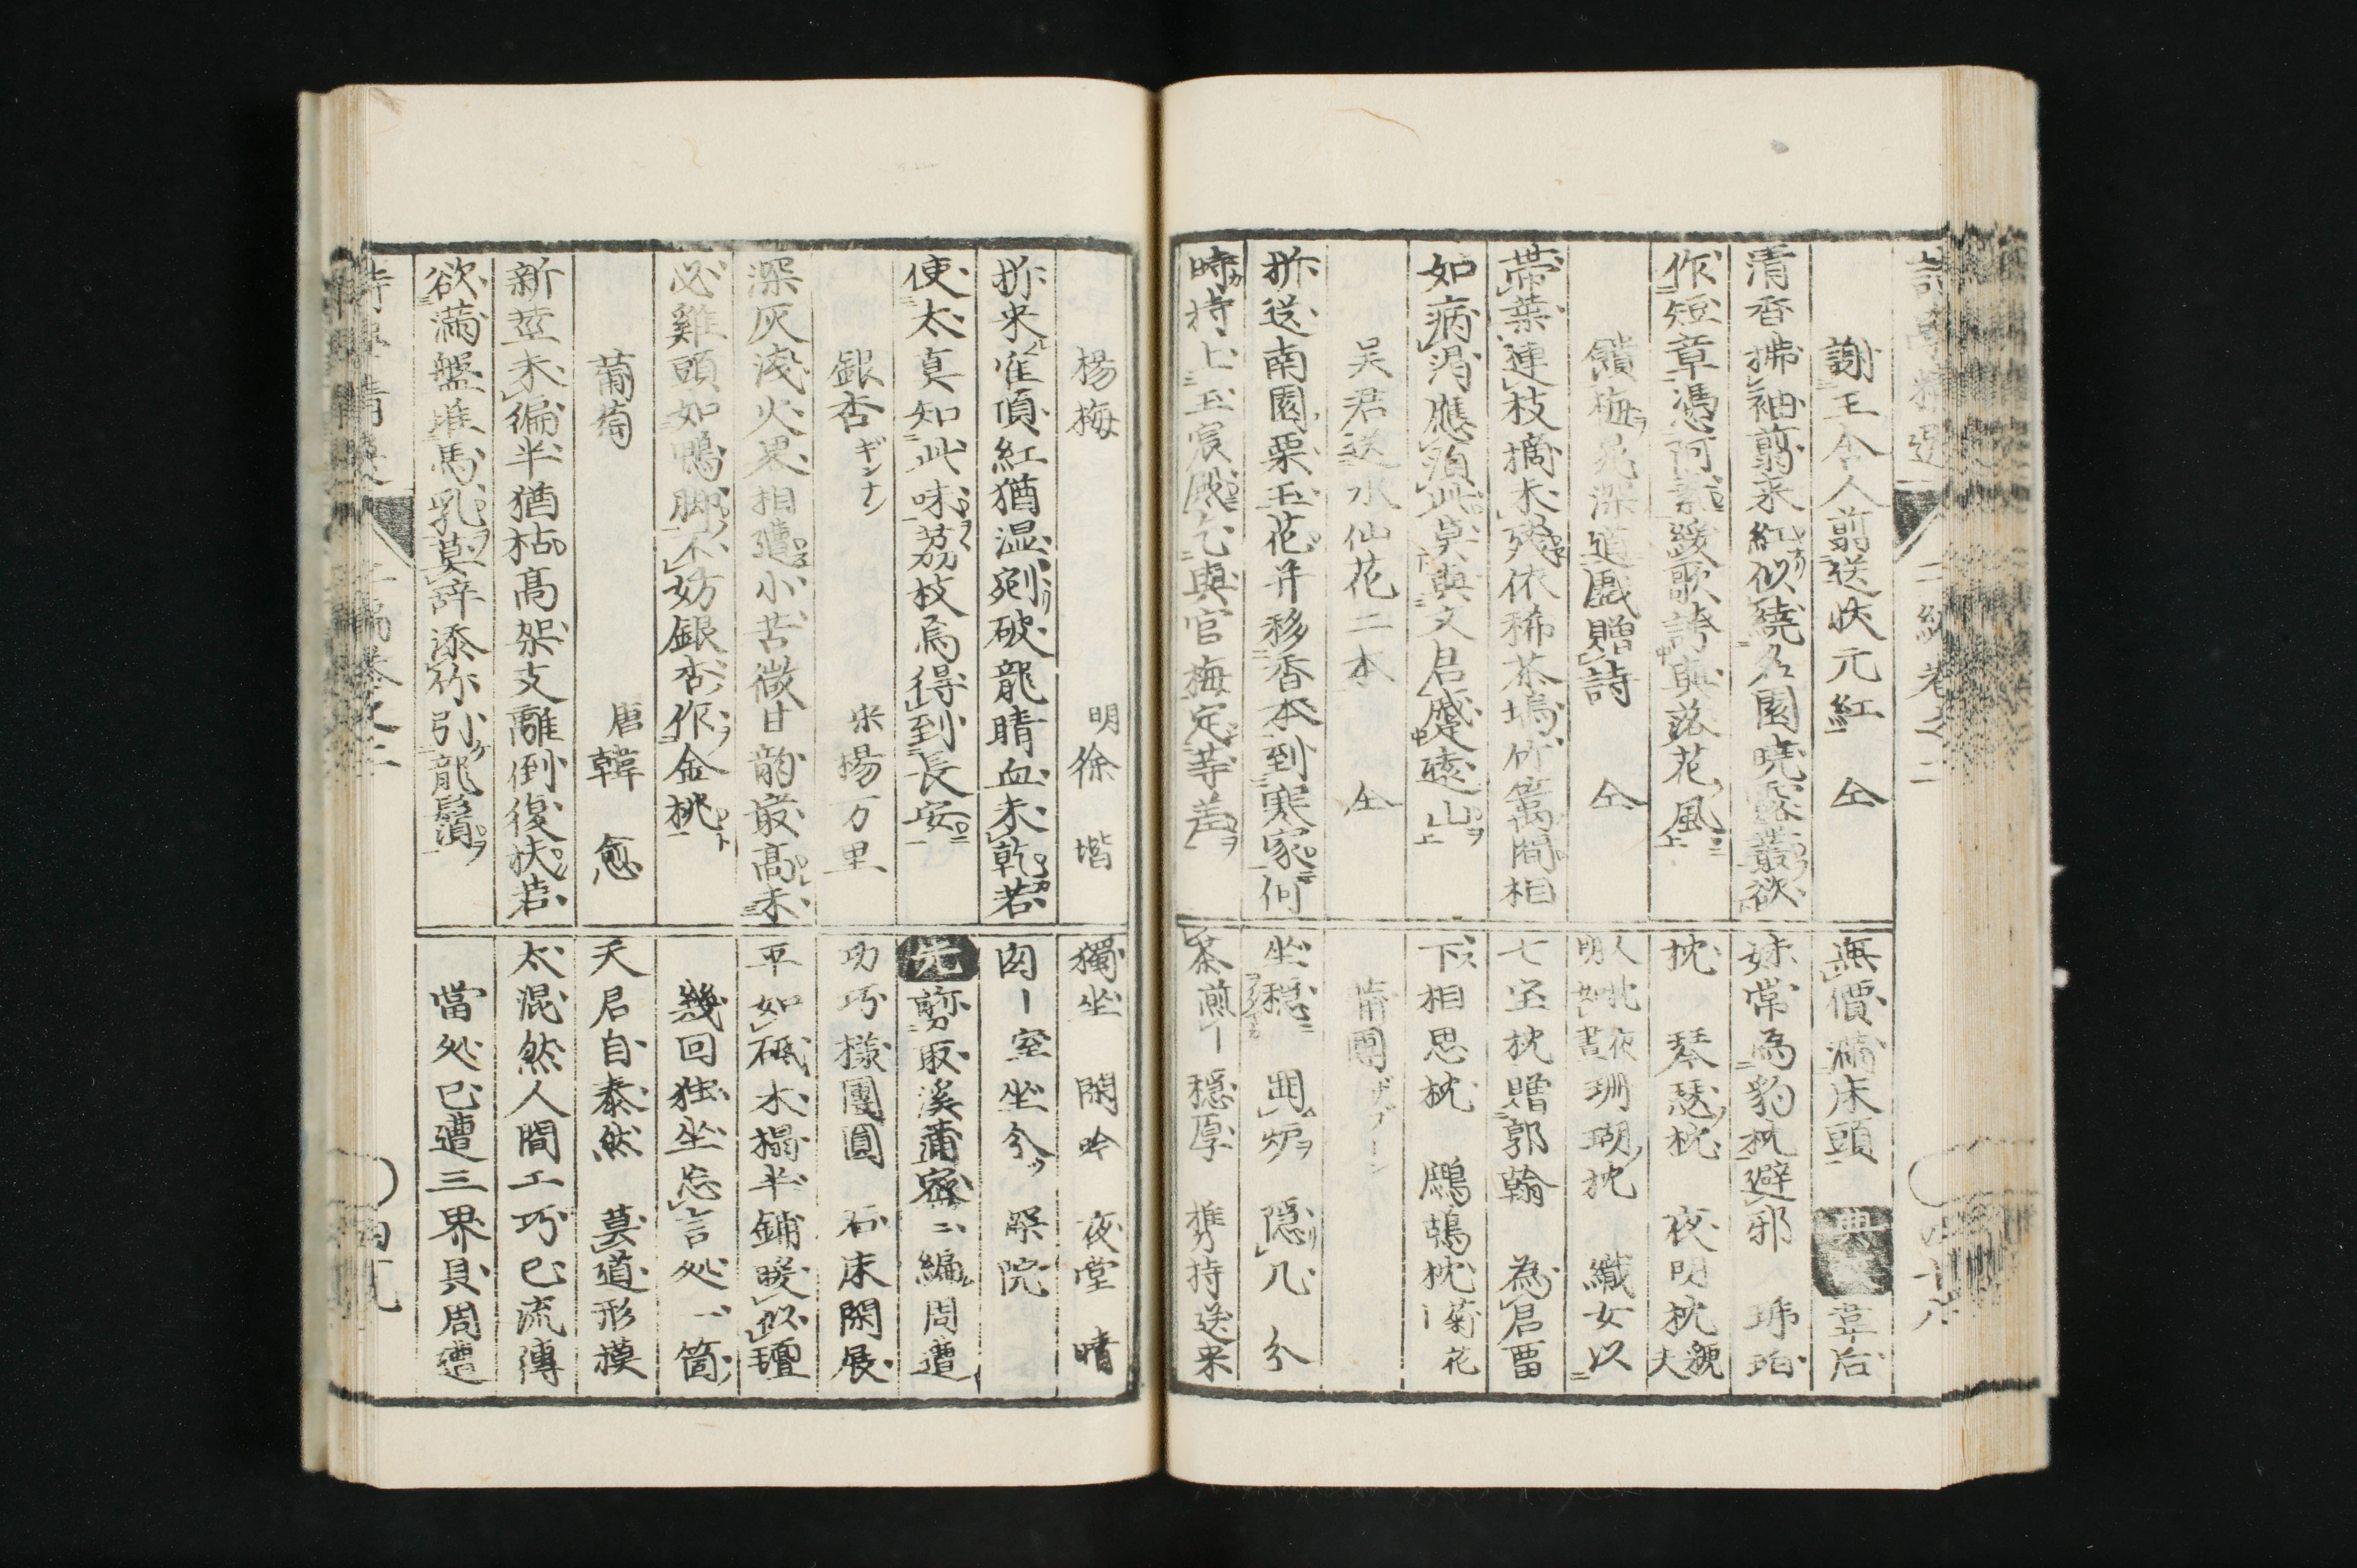 謝王令人剪送状元紅 仝
清香拂袖剪来紅似繞名園曉露叢欲
作短章憑阿素緩歌誇与落花風
饋梅 深道 戯贈詩 仝
帯葉連枝摘未残依稀茶塢竹籬間相
如病渇應須此莫與文君蹙遠山
吴君送水仙花二本 仝
折送南園栗玉花并移香本到寒家何
時持上玉宸殿乞與官梅定等差
無價満床頭 典 韋后
妹常為豹枕避邪 琥珀
枕 琴瑟枕 夜明枕 虢夫
人枕夜明如昼 珊瑚枕 織女以
七宝枕贈郭翰 為君留
下相思枕 鷓鴣枕 菊花
蒲團 ザブーン
坐穏 囲炉 隠几 分
茶煎ー 穏厚 携持送来
楊梅 明徐 堦
折来隺頂紅猶湿剜破龍睛血未乾若
使太真知此味茘枝烏得到長安
銀杏 ギンナン 宋楊万里
深灰浅火畧相遭小苦微甘韵最高未
必雞頭如鴨脚不妨銀杏作金桃
葡萄 唐韓 愈
新莖未徧半猶枯高架支離倒復扶若
欲満盤堆馬乳莫辞添竹引龍鬚
獨坐 閑吟 夜堂 晴
囱ー 室 坐 分 深院
元 剪取溪蒲密ミ編 周遭
功巧様團圓 石床閑展
平如砥 木榻半鋪暖似氊
幾回独坐忘言処 一箇
天君自泰然 莫道形模
太混然 人間工巧已流傳
當処已遭三界 貝周遭